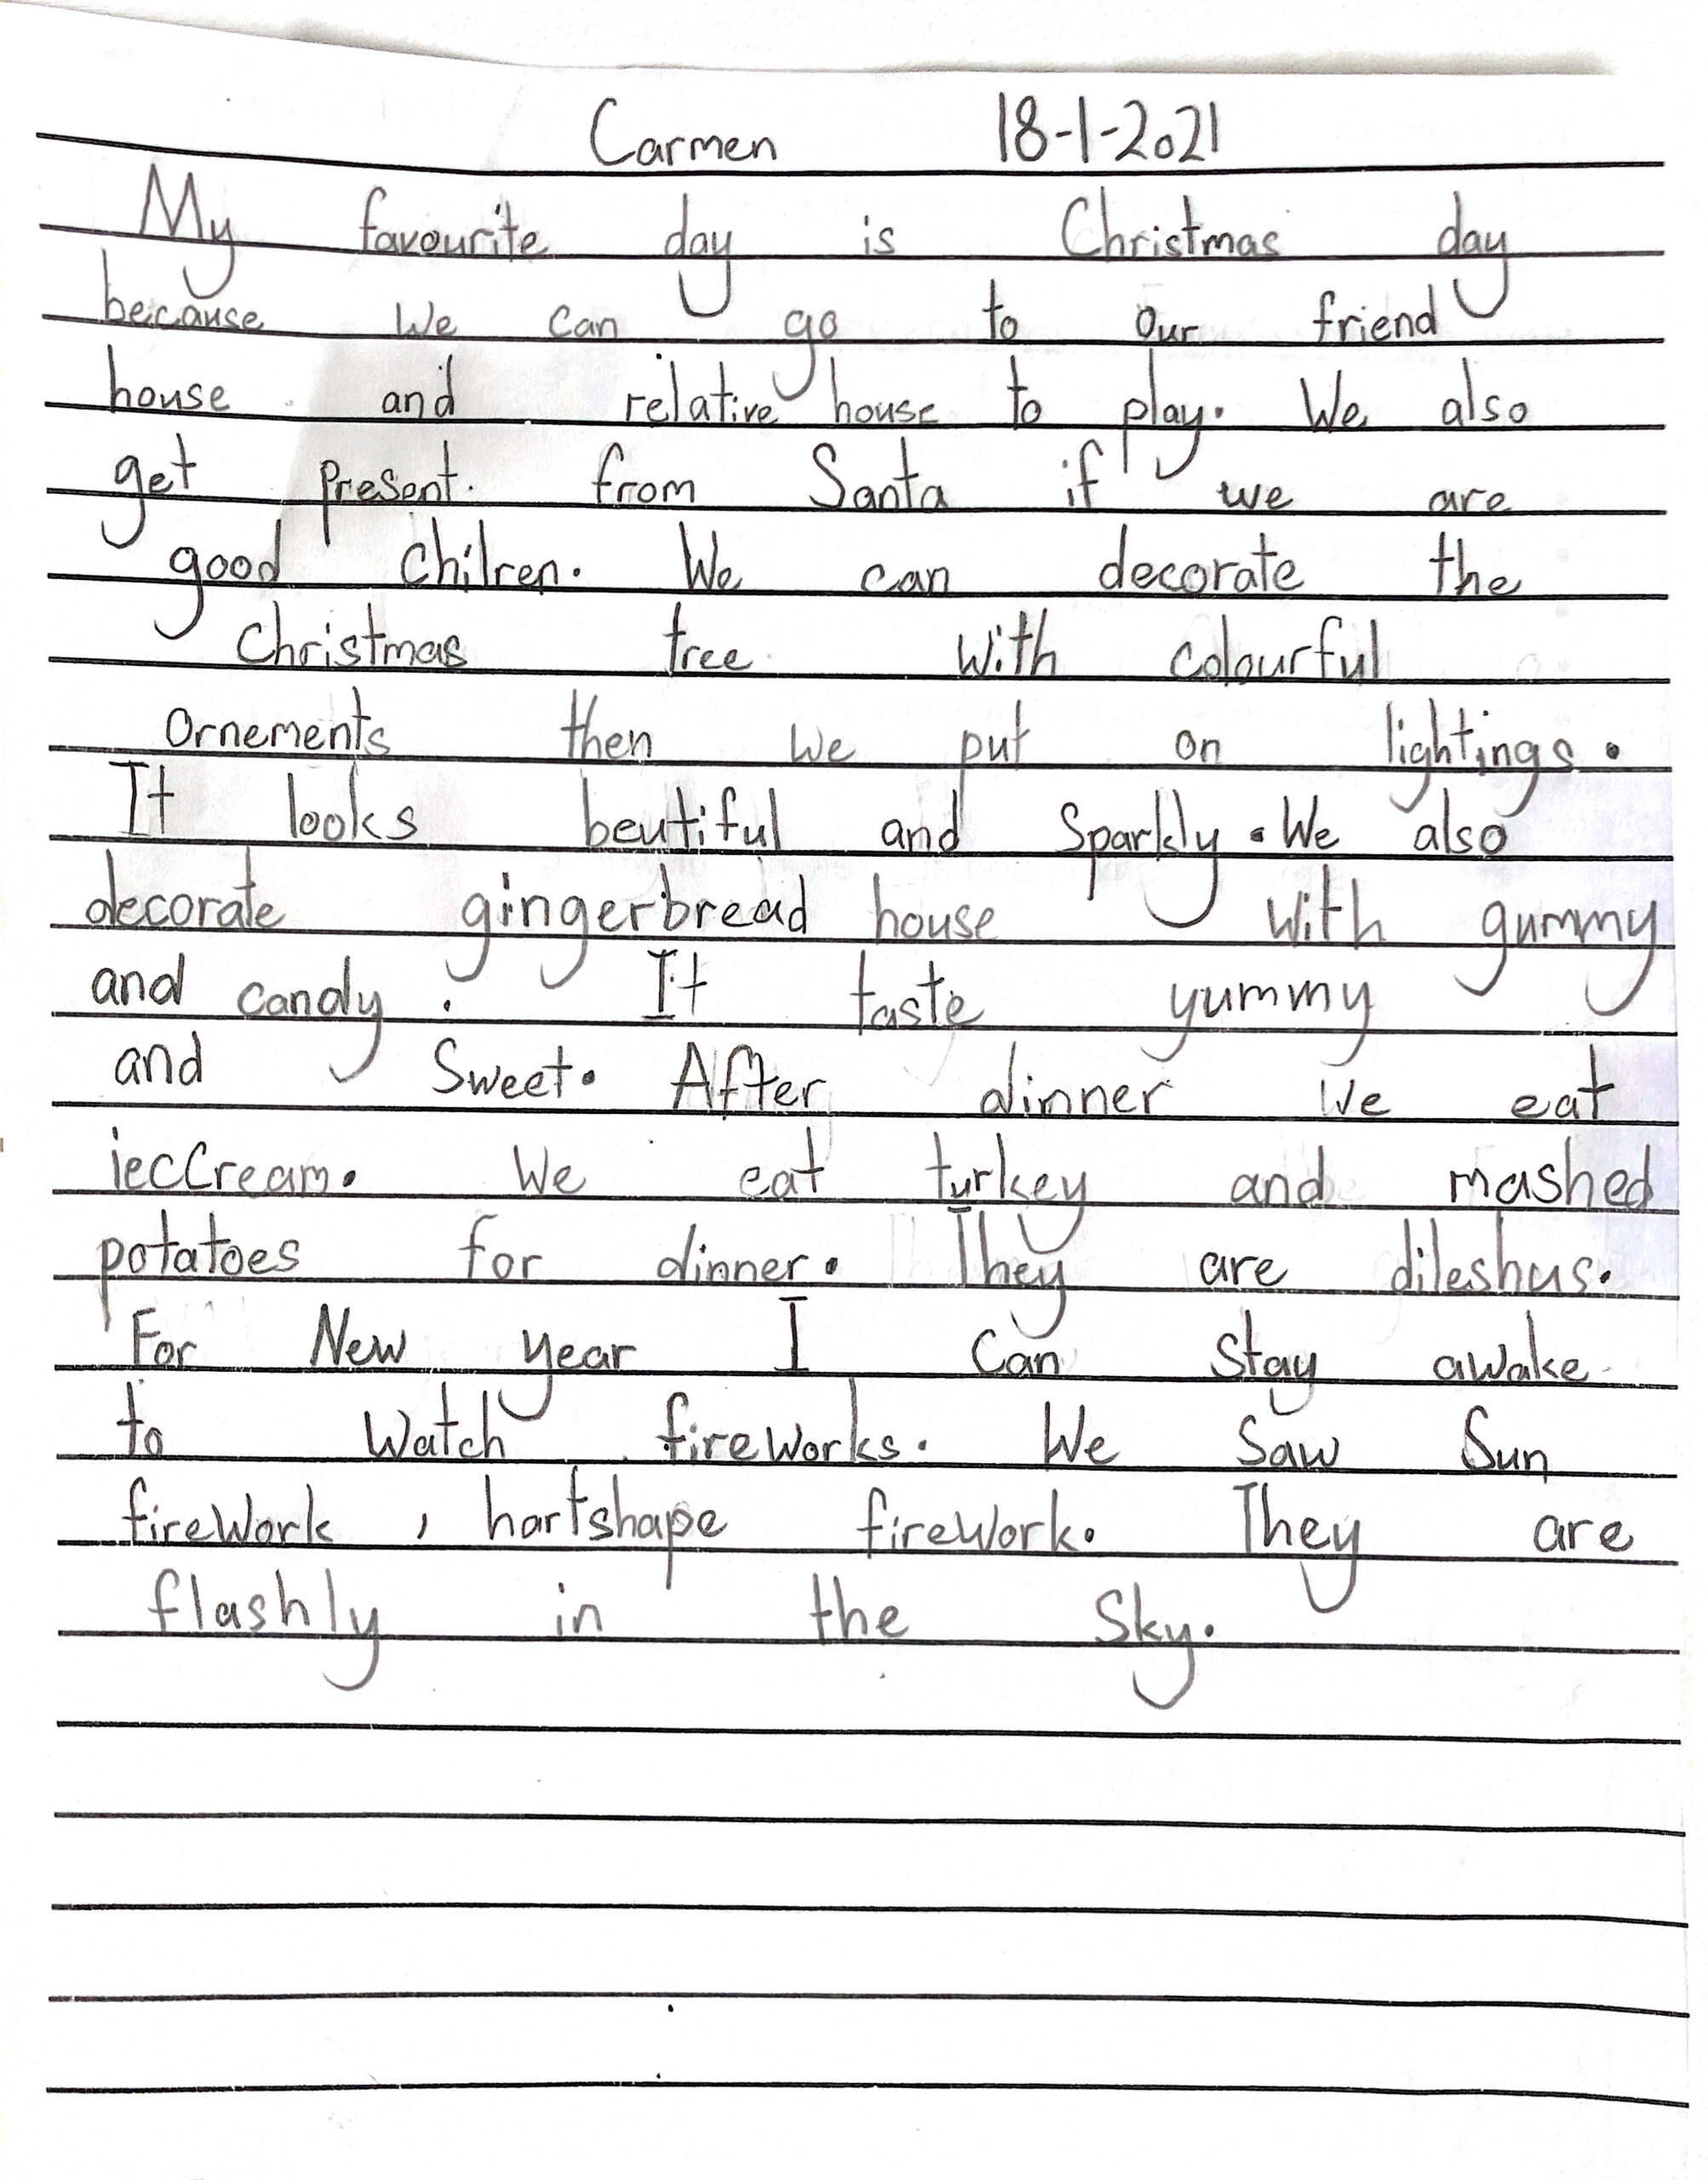 Carmen 18-1-2021
My favourite day is Christmas day
because We can go to our friend
house and relative house to play. We also
get present. from Santa if we are
good chilren. We can decorate the
Christmas tree with colourful
ornements then we put on lightings.
It looks beutiful and Sparkly. We also
decorate gingerbread house with gummy
and candy. It taste yummy
and Sweet. After dinner we eat
iecCream. We eat turkey and mashed
potatoes for dinner. They are dileshus.
For New year I can stay awake
to watch fireworks. We saw Sun
firework, hartshape firework. They are
flashly in the sky.